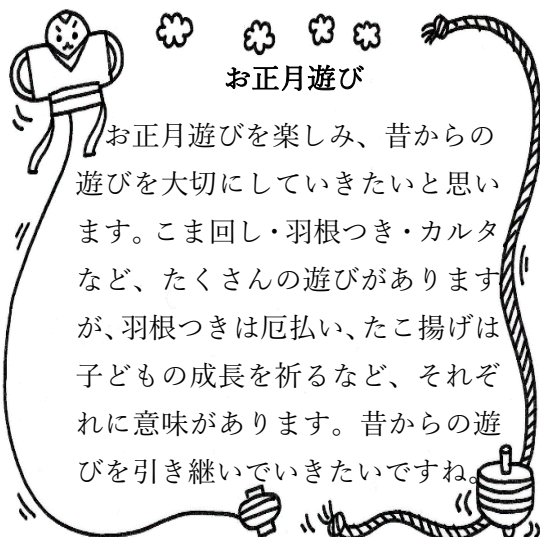 お正月遊び
お正月遊びを楽しみ、昔からの
遊びを大切にしていきたいと思い
ます。こま回し・羽根つき・カルタ
など、たくさんの遊びがあります
が、羽根つきは厄払い、たこ揚げは
子どもの成長を祈るなど、それぞ
れに意味があります。昔からの遊
びを引き継いでいきたいですね。